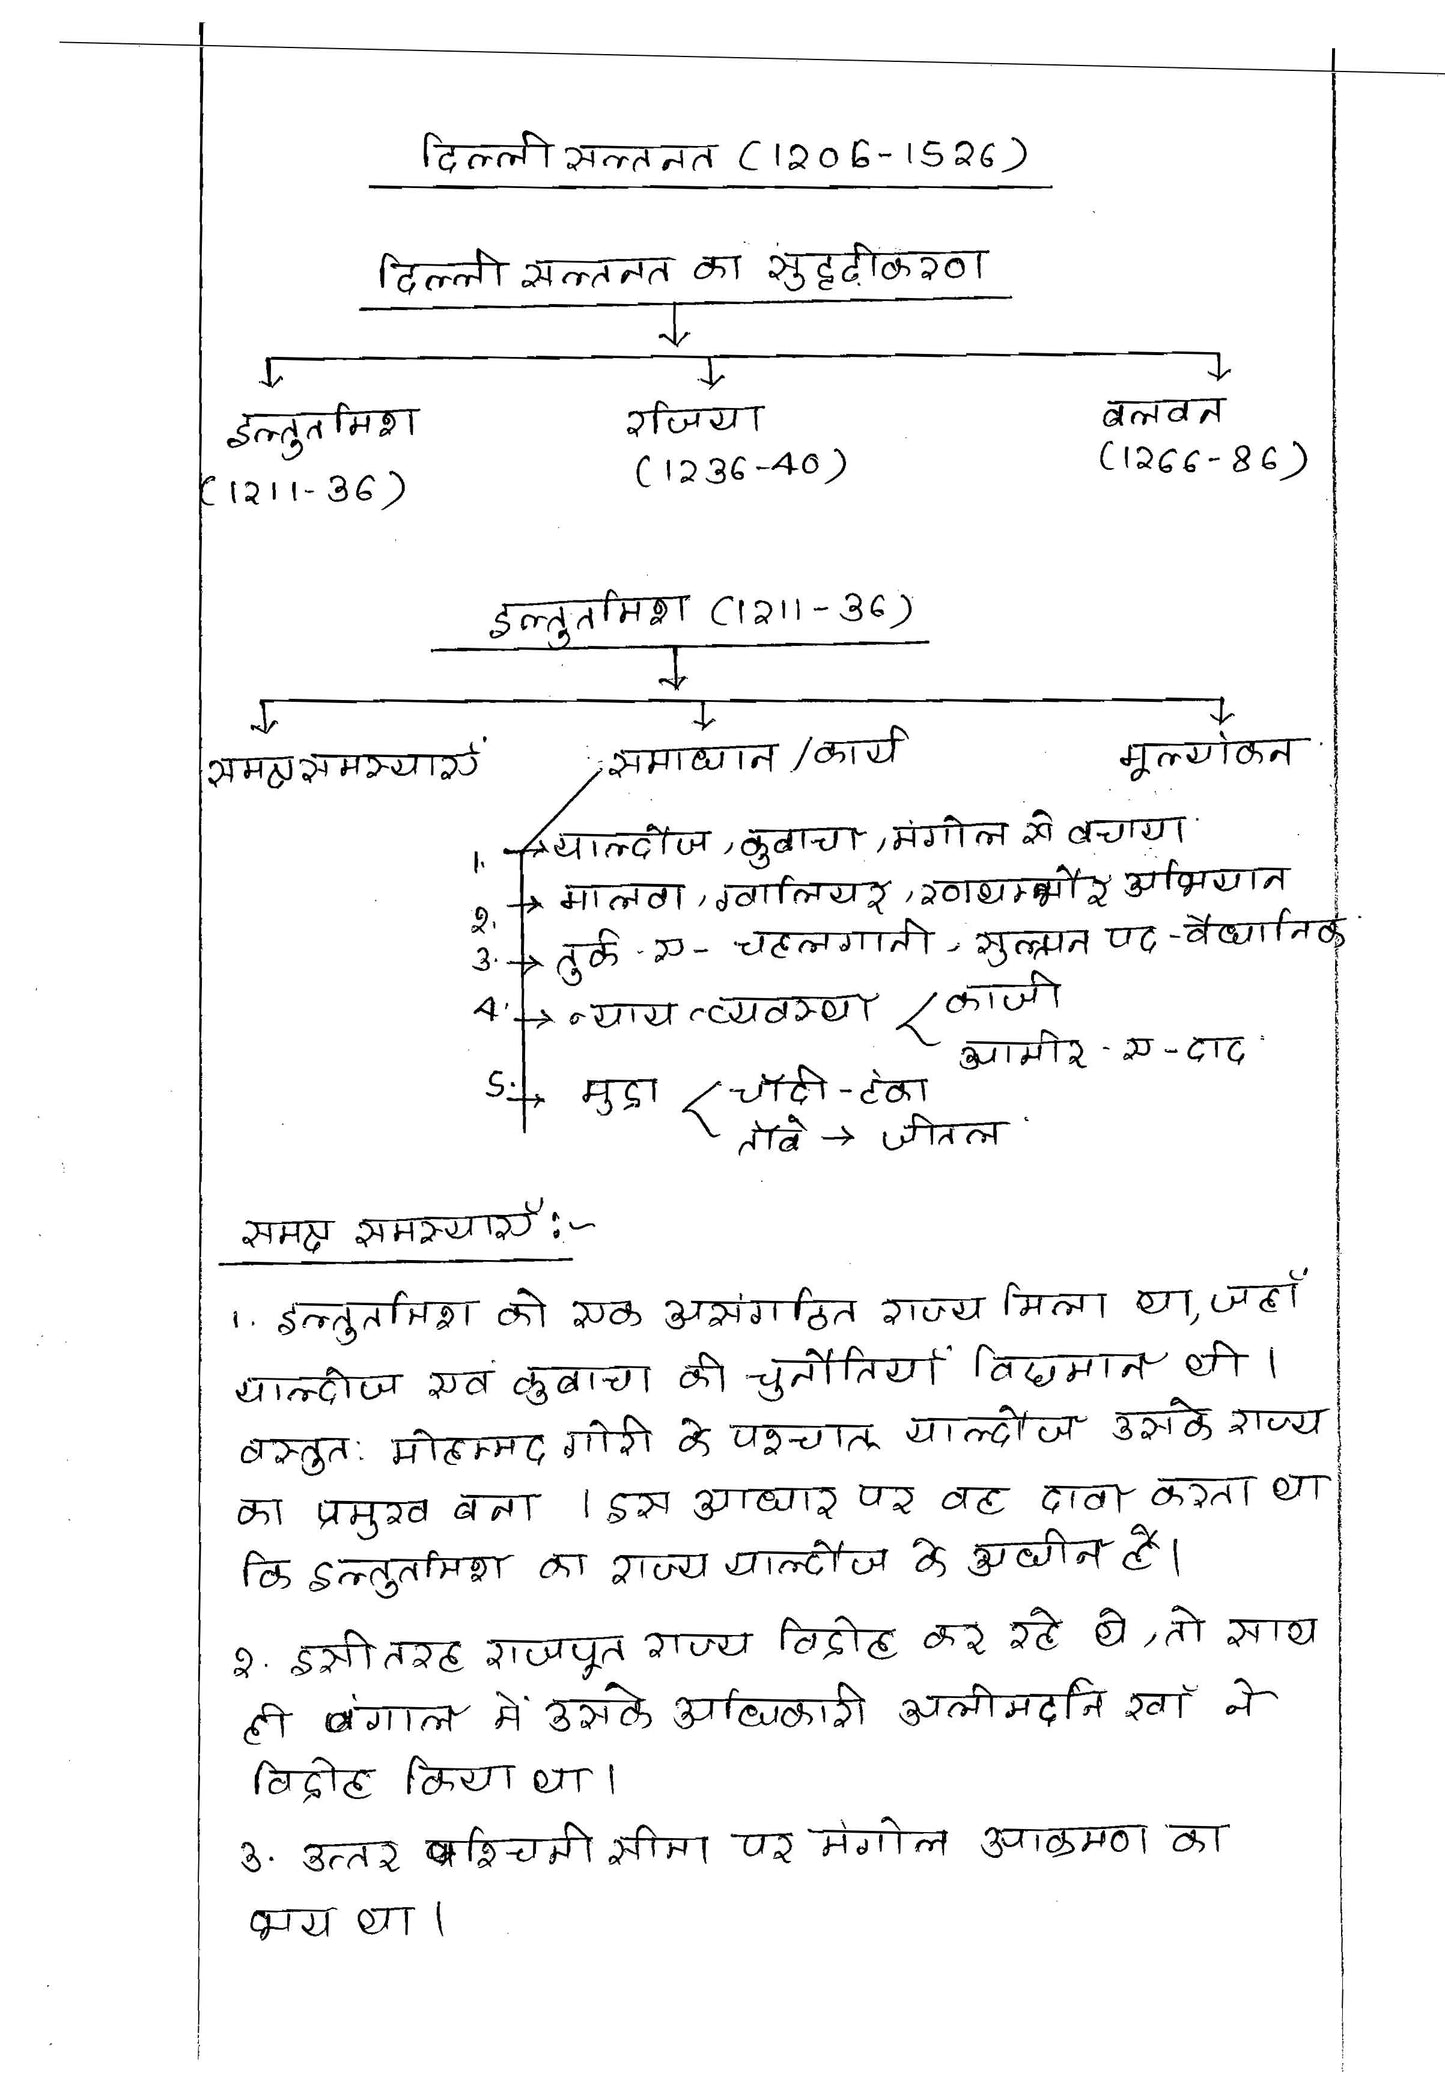 दिल्ली सल्तनत (1206-1526)
दिल्ली सल्तनत का सुदृढ़ीकरण
इल्तुतमिश रजिया बलबन
(1211-36) (1236-40) (1266-86)
इल्तुतमिश (1211-36)
समक्ष समस्याएँ समाधान/कार्य मूल्यांकन
1. → याल्दौज, कुबाचा, मंगोल से बचाया
2. → मालवा, ग्वालियर, रणथम्भौर अभियान
3. → तुर्क-ए-चहलगानी, सुल्तान पद-वैधानिक
4. → न्याय व्यवस्था < काजी
आमीर-ए-दाद
5. → मुद्रा < चाँदी-टंका
ताँबे → जीतल
समक्ष समस्याएँ :-
1. इल्तुतमिश को एक असंगठित राज्य मिला था, जहाँ
याल्दोज एवं कुबाचा की चुनौतियाँ विद्यमान थी।
वस्तुतः मोहम्मद गोरी के पश्चात् याल्दौज उसके राज्य
का प्रमुख बना । इस आधार पर वह दावा करता था
कि इल्तुतमिश का राज्य याल्दौज के अधीन है।
2. इसी तरह राजपूत राज्य विद्रोह कर रहे थे, तो साथ
ही बंगाल में उसके अधिकारी अलीमर्दान खाँ ने
विद्रोह किया था।
3. उत्तर पश्चिमी सीमा पर मंगोल आक्रमण का
भय था।